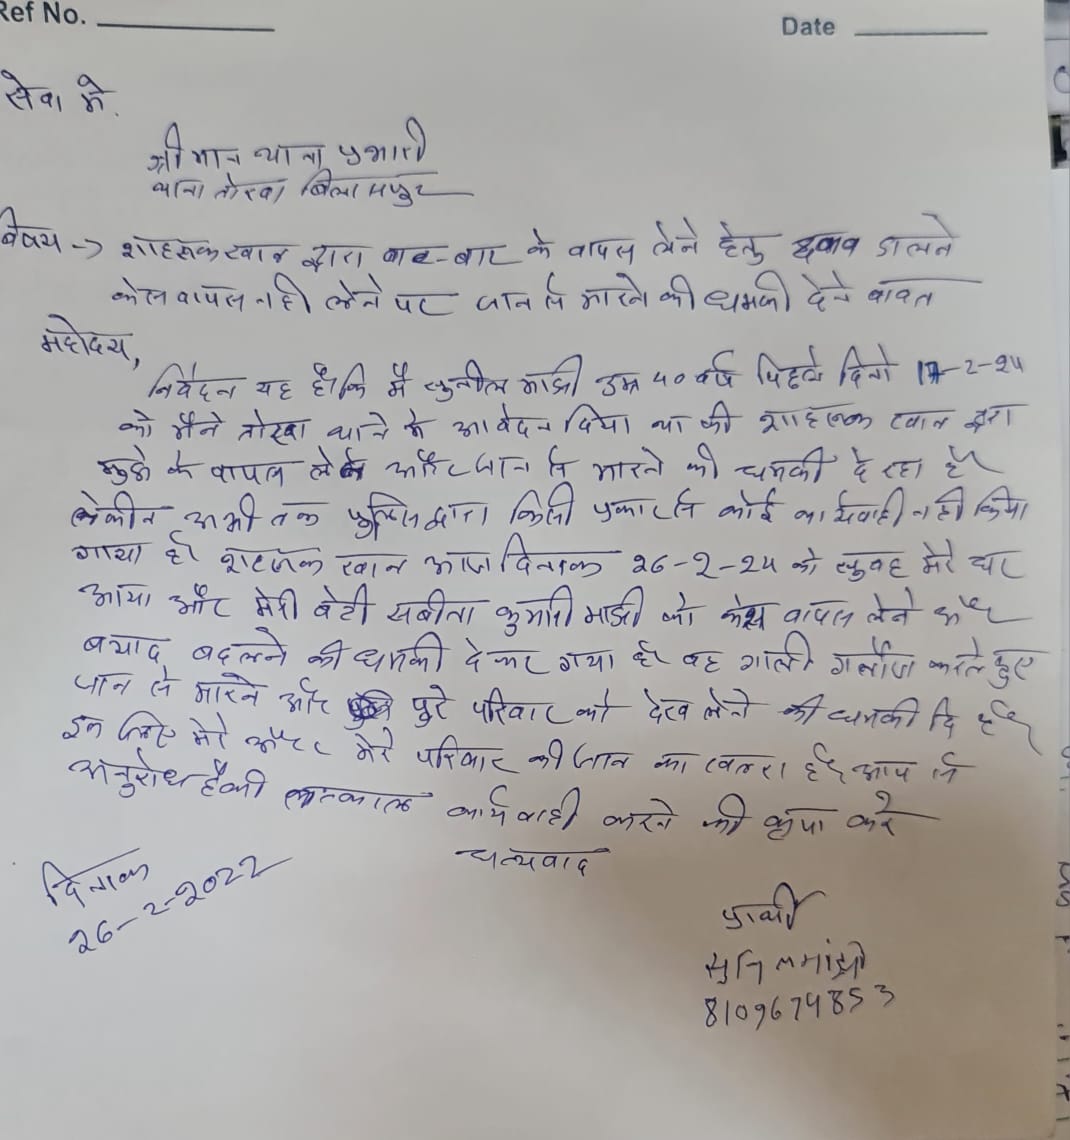 Ref No.
Date
सेवा में.
श्रीमान थाना प्रभारी
थाना तोरवा बिलासपुर
विषय -> शाहरूक खान द्वारा बार-बार के वापस लेने हेतु दबाव डालने
केस वापस नही लेने पर जान से मारने की धमकी देने बावत
महोदय,
निवेदन यह है कि मै सुनील माझी उम्र 40 वर्ष पिछले दिनो 17-2-24
को मैने तोरवा थाने मे आवेदन दिया था की शाहरूक खान द्वारा
मुझे के वापस लेने और जान से मारने की धमकी दे रहा है
लेकीन अभी तक पुलिस द्वारा किसी प्रकार से कोई कार्यवाही नही किया
गाया है। शाहरूक खान आज दिनाक 26-2-24 को सुबह मेरे घर
आया और मेरी बेटी सबीता कुमारी माझी को केस वापस लेने और
बयाद बदलने की धमकी दे कर गया है। वह गाली गलौज करते हुए
जान से मारने और पुरे परिवार को देख लेने की धमकी दि है
इस लिए मेरे और मेरे परिवार की जान का खतरा है आप से
अनुरोध है की तत्काल कार्यवाही करने की कृपा करे
धन्यवाद
दिनाक
26-2-2022
प्रार्थी
सुनिल मांझी
8109674853